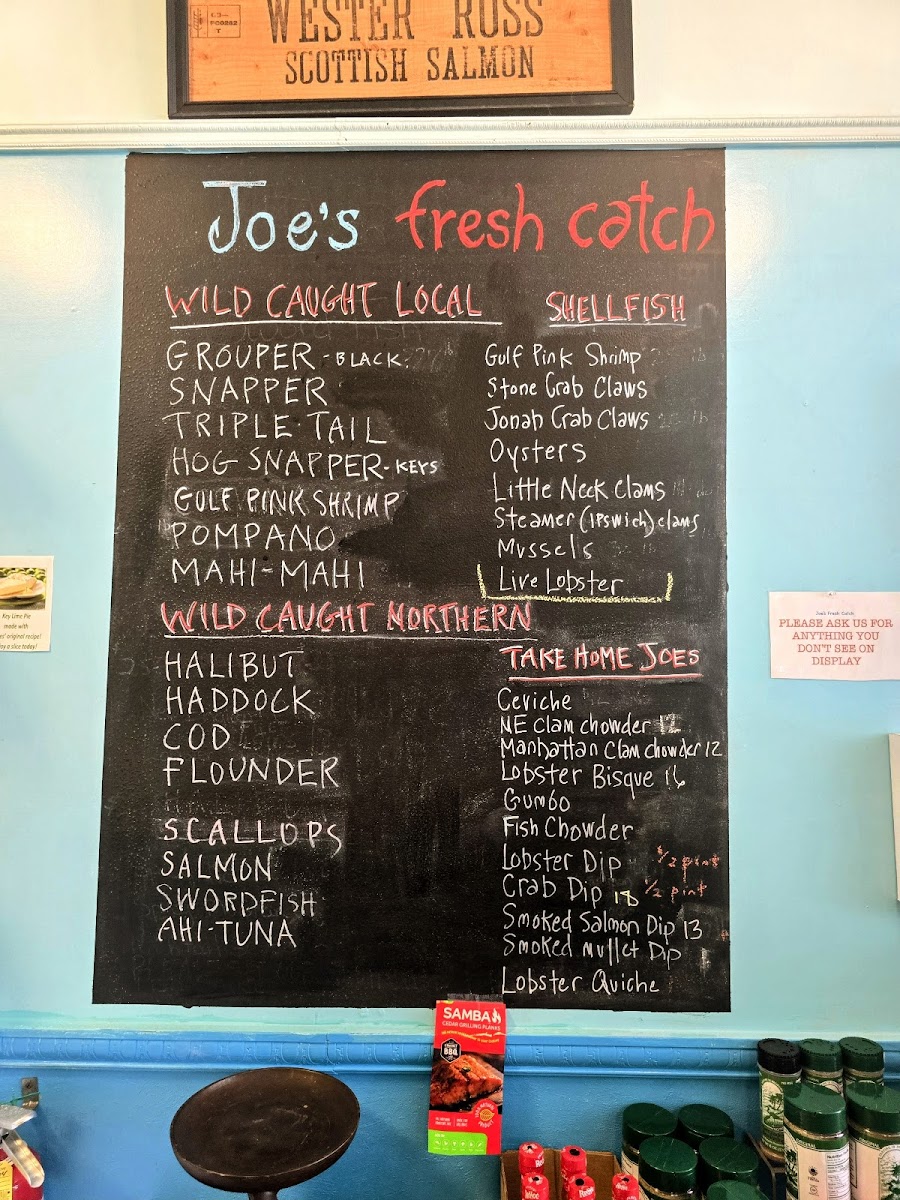 WESTER ROSS
SCOTTISH SALMON
Joe's fresh catch
WILD CAUGHT LOCAL
GROUPER - BLACK
SNAPPER
TRIPLE TAIL
HOG SNAPPER - KEYS
GULF PINK SHRIMP
POMPANO
MAHI-MAHI
WILD CAUGHT NORTHERN
HALIBUT
HADDOCK
COD
FLOUNDER
SCALLOPS
SALMON
SWORDFISH
AHI-TUNA
SHELLFISH
Gulf Pink Shrimp
Stone Crab Claws
Jonah Crab Claws
Oysters
Little Neck clams
Steamer (Ipswich) clams
Mussels
Live Lobster
TAKE HOME JOES
Ceviche
NE Clam chowder 12
Manhattan Clam chowder 12
Lobster Bisque 16
Gumbo
Fish Chowder
Lobster Dip 1/2 pint
Crab Dip 18 1/2 pint
Smoked Salmon Dip 13
Smoked mullet Dip
Lobster Quiche
Key Lime Pie
made with
original recipe!
a slice today!
Joe's Fresh Catch
PLEASE ASK US FOR
ANYTHING YOU
DON'T SEE ON
DISPLAY
SAMBA
CEDAR GRILLING PLANKS
BBQ